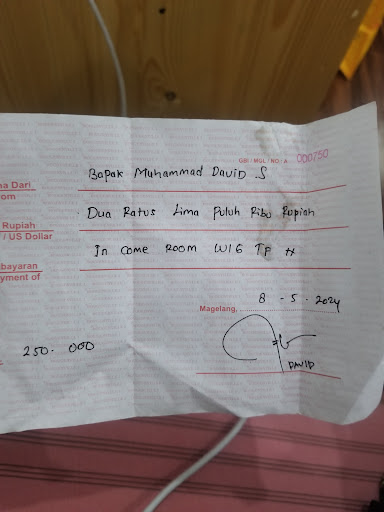 GBI / MGL / NO / A 000750
na Dari Bapak Muhammad David S
om
Rupiah Dua Ratus Lima Puluh Ribu Rupiah
/ US Dollar
bayaran In Come Room W16 TP
yment of
Magelang, 8 - 5 - 2024
250. 000
DAVID